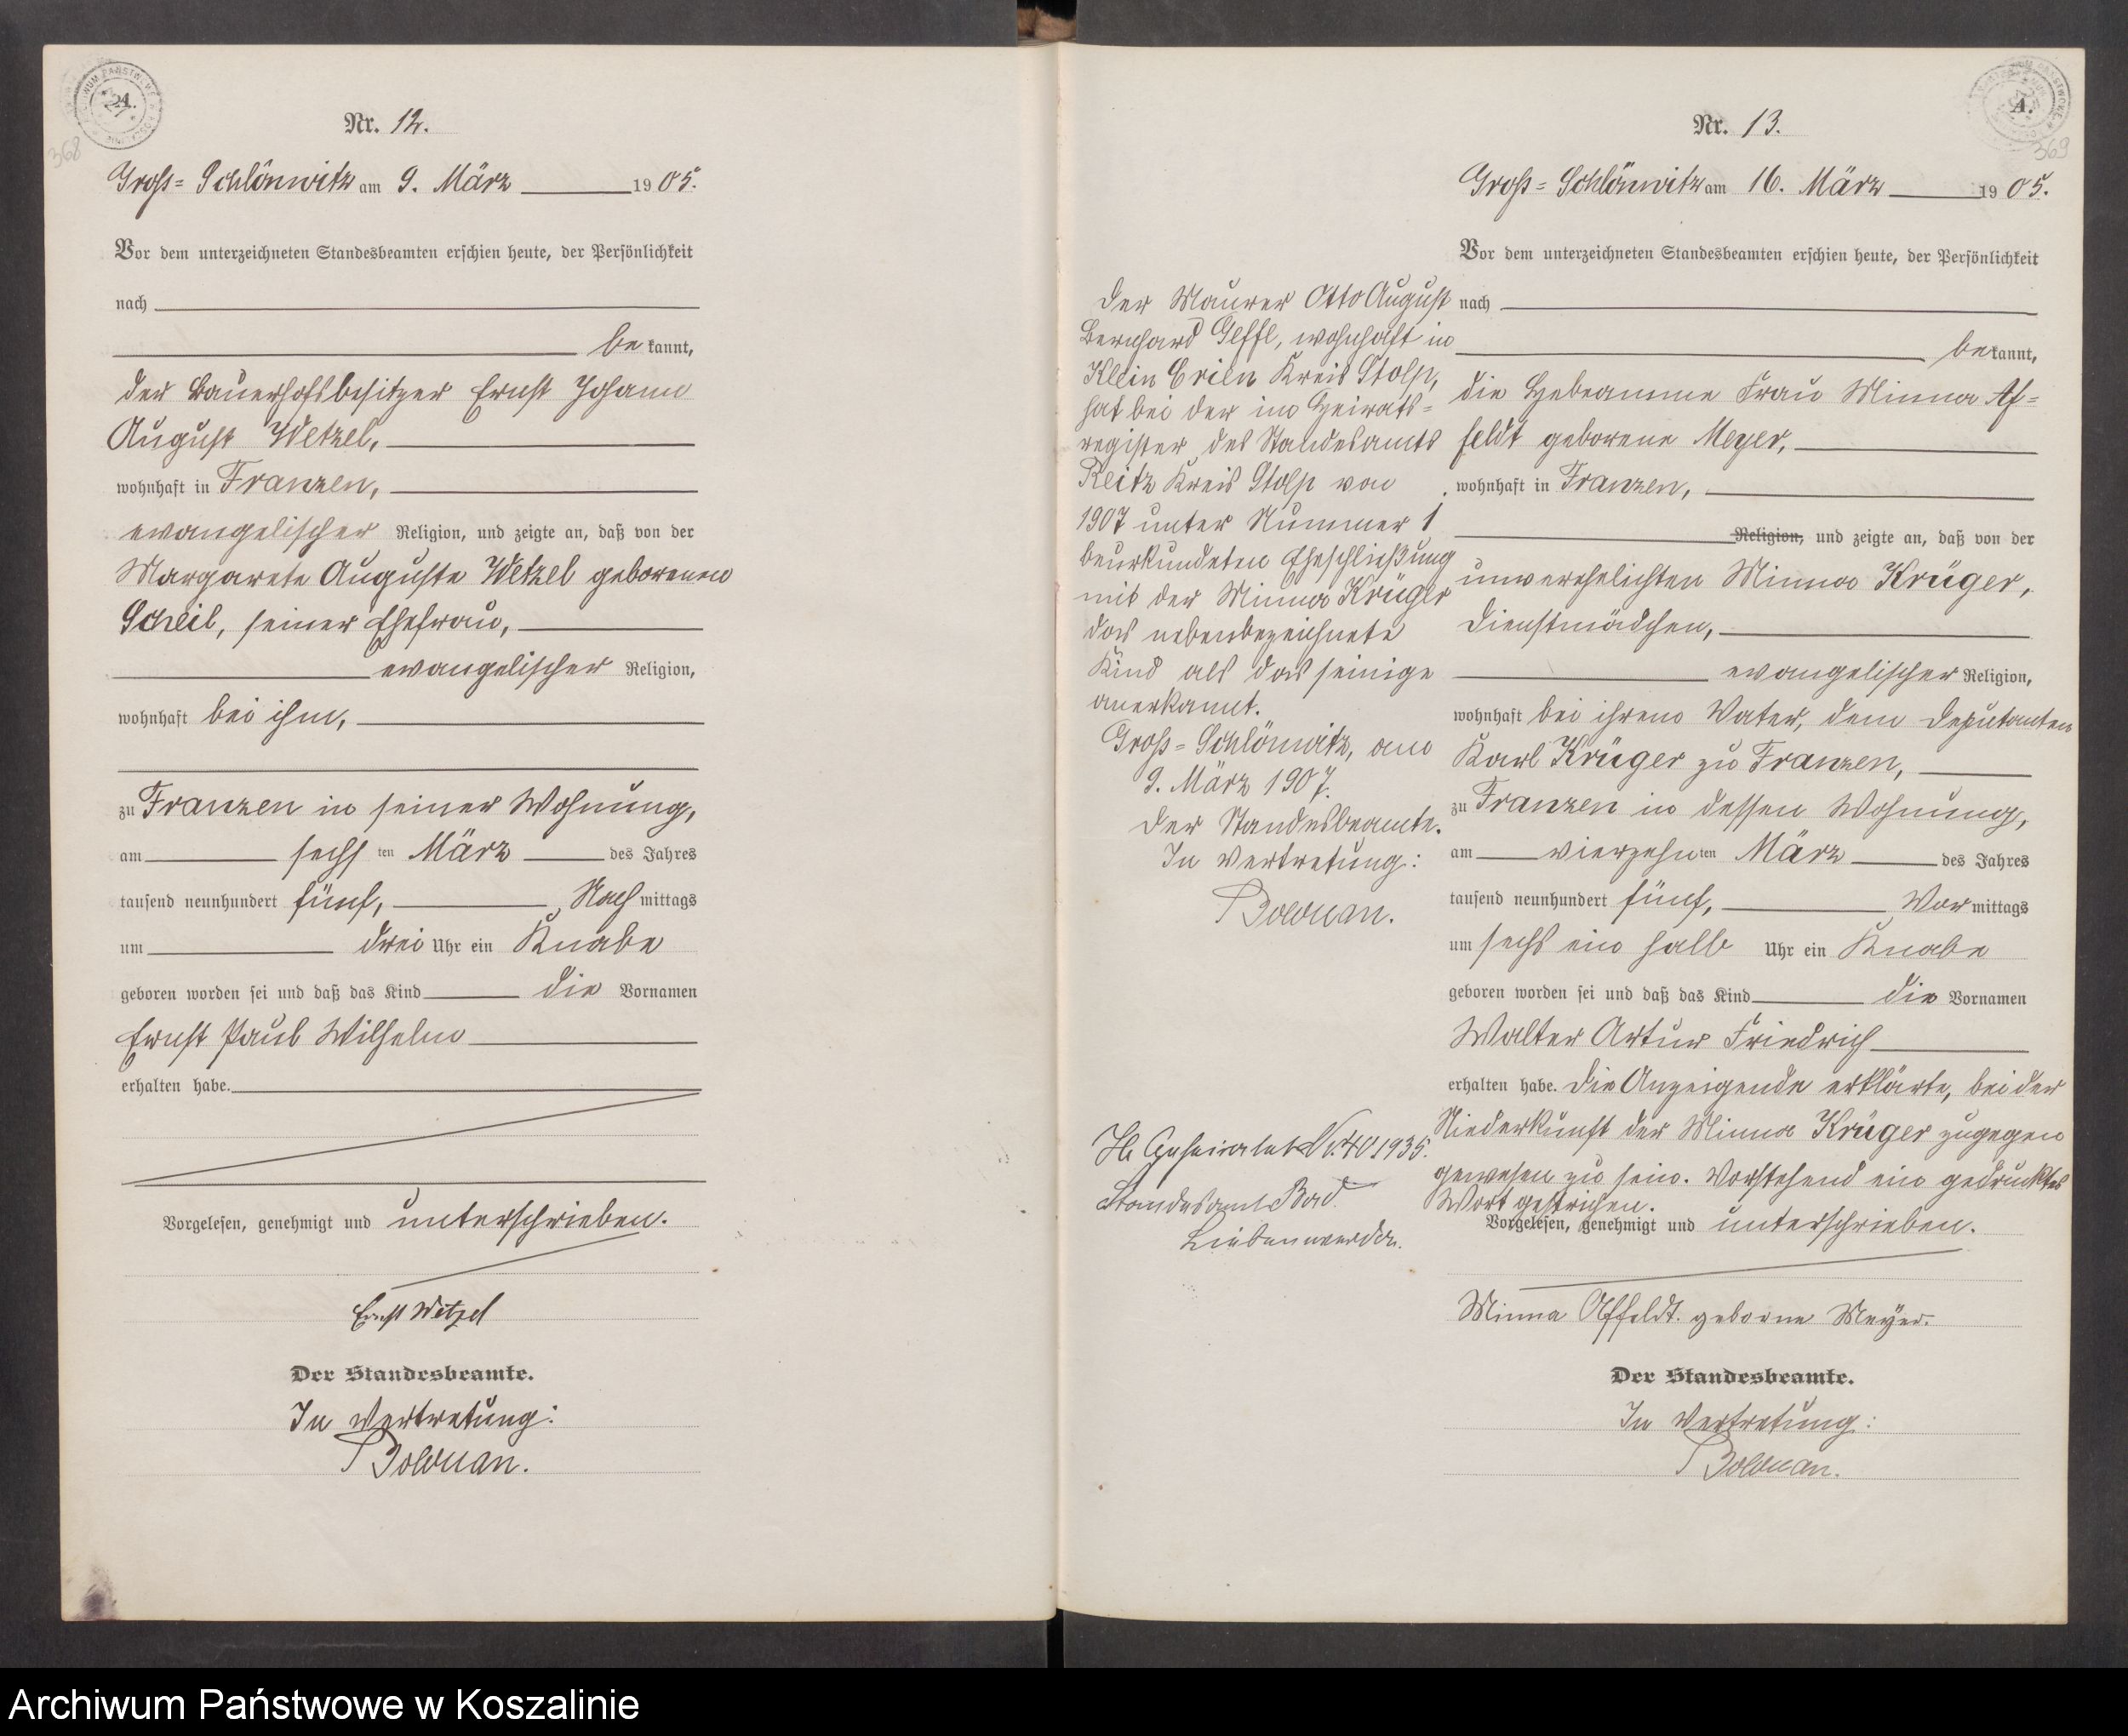 A.
368
Nr. 12.
Groß-Schlönwitz am 9. März 1905.
Vor dem unterzeichneten Standesbeamten erschien heute, der Persönlichkeit
nach
be kannt,
der Bauerhofsbesitzer Ernst Johann
August Wetzel,
wohnhaft in Franzen,
evangelischer Religion, und zeigte an, daß von der
Margarete Auguste Wetzel geborenen
Scheil, seiner Ehefrau,
evangelischer Religion,
wohnhaft bei ihm,
zu Franzen in seiner Wohnung,
am sechsten März des Jahres
tausend neunhundert fünf, Nachmittags
um drei Uhr ein Knabe
geboren worden sei und daß das Kind die Vornamen
Ernst Paul Wilhelm
erhalten habe.
Vorgelesen, genehmigt und unterschrieben.
Ernst Wetzel
Der Standesbeamte.
In Vertretung:
Bolduan.
der Maurer Otto August
Bernhard, wohnhaft in
Klein Crien Kreis Stolp,
hat bei der im Heirats-
register des Standesamts
Reitz Kreis Stolp von
1907 unter Nummer 1
beurkundeten Eheschließung
mit der Minna Krüger
das nebenbezeichnete
Kind als das seinige
anerkannt.
Groß-Schlönwitz, am
9. März 1907.
Der Standesbeamte.
In Vertretung:
Bolduan.
Nr. 40 1935.
Standesamt Bad
Liebenwerda.
A.
369
Nr. 13.
Groß-Schlönwitz am 16. März 1905.
Vor dem unterzeichneten Standesbeamten erschien heute, der Persönlichkeit
nach
bekannt,
die Hebeamme Frau Minna Af-
feldt geborene Meyer,
wohnhaft in Franzen,
Religion, und zeigte an, daß von der
unverehelichten Minna Krüger,
Dienstmädchen,
evangelischer Religion,
wohnhaft bei ihrem Vater, dem Deputanten
Karl Krüger zu Franzen,
zu Franzen in dessen Wohnung,
am vierzehnten März des Jahres
tausend neunhundert fünf, Vormittags
um sechs ein halb Uhr ein Knabe
geboren worden sei und daß das Kind die Vornamen
Walter Artur Friedrich
erhalten habe. Die Anzeigende erklärte, bei der
Niederkunft der Minna Krüger zugegen
gewesen zu sein. Vorstehend ein gedrucktes
Wort gestrichen.
Vorgelesen, genehmigt und unterschrieben.
Minna Affeldt. geborne Meyer.
Der Standesbeamte.
In Vertretung:
Bolduan.
Archiwum Państwowe w Koszalinie